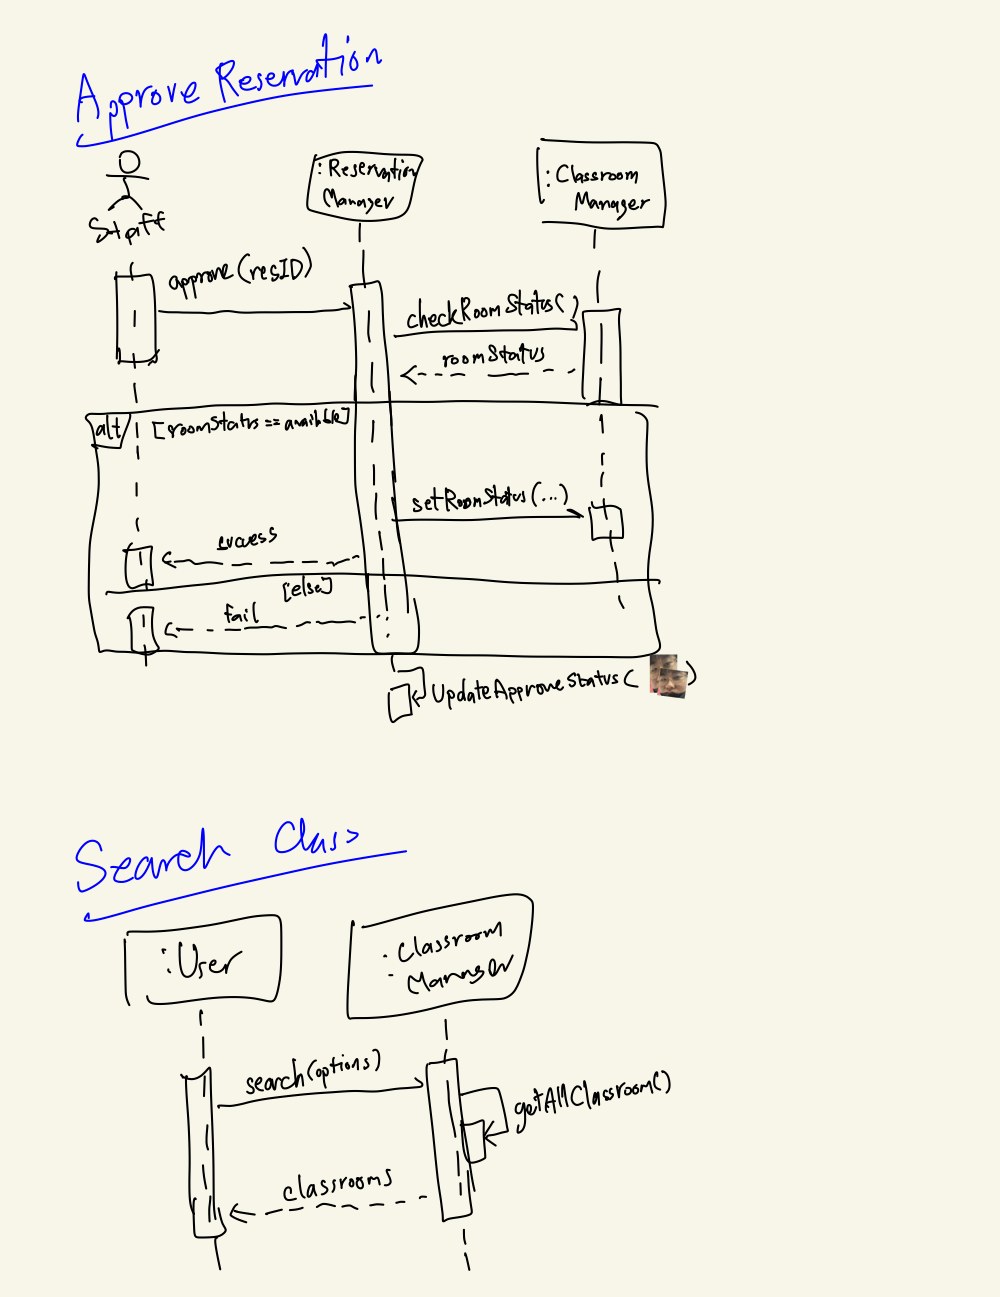 Approve Reservation
:Reservation
Manager
:Classroom
Manager
Staff
approve(resID)
checkRoomStatus()
roomStatus
alt
[roomStatus == available]
setRoomStatus(...)
success
[else]
fail
UpdateApproveStatus( )
Search Class
:User
:Classroom
Manager
search(options)
getAllClassroom()
classrooms